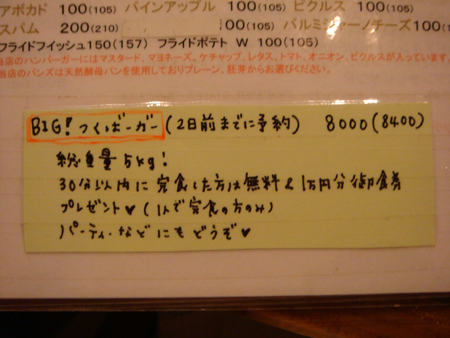 アボカド 100(105) パインアップル 100(105) ピクルス 100(105)
スパム 200(210) 00(105) パルミジャーノチーズ 100(1
フライドフィッシュ150(157) フライドポテト W 100(105)
当店のハンバーガーにはマスタード、マヨネーズ、ケチャップ、レタス、トマト、オニオン、ピクルスが入っています。
当店のバンズは天然酵母パンを使用しておりプレーン、胚芽からお選びください。
BIG! つくばーガー (2日前までに予約) 8000(8400)
総重量5kg!
30分以内に完食した方は無料&1万円分御食券
プレゼント♥(1人で完食の方のみ)
パーティーなどにもどうぞ♥